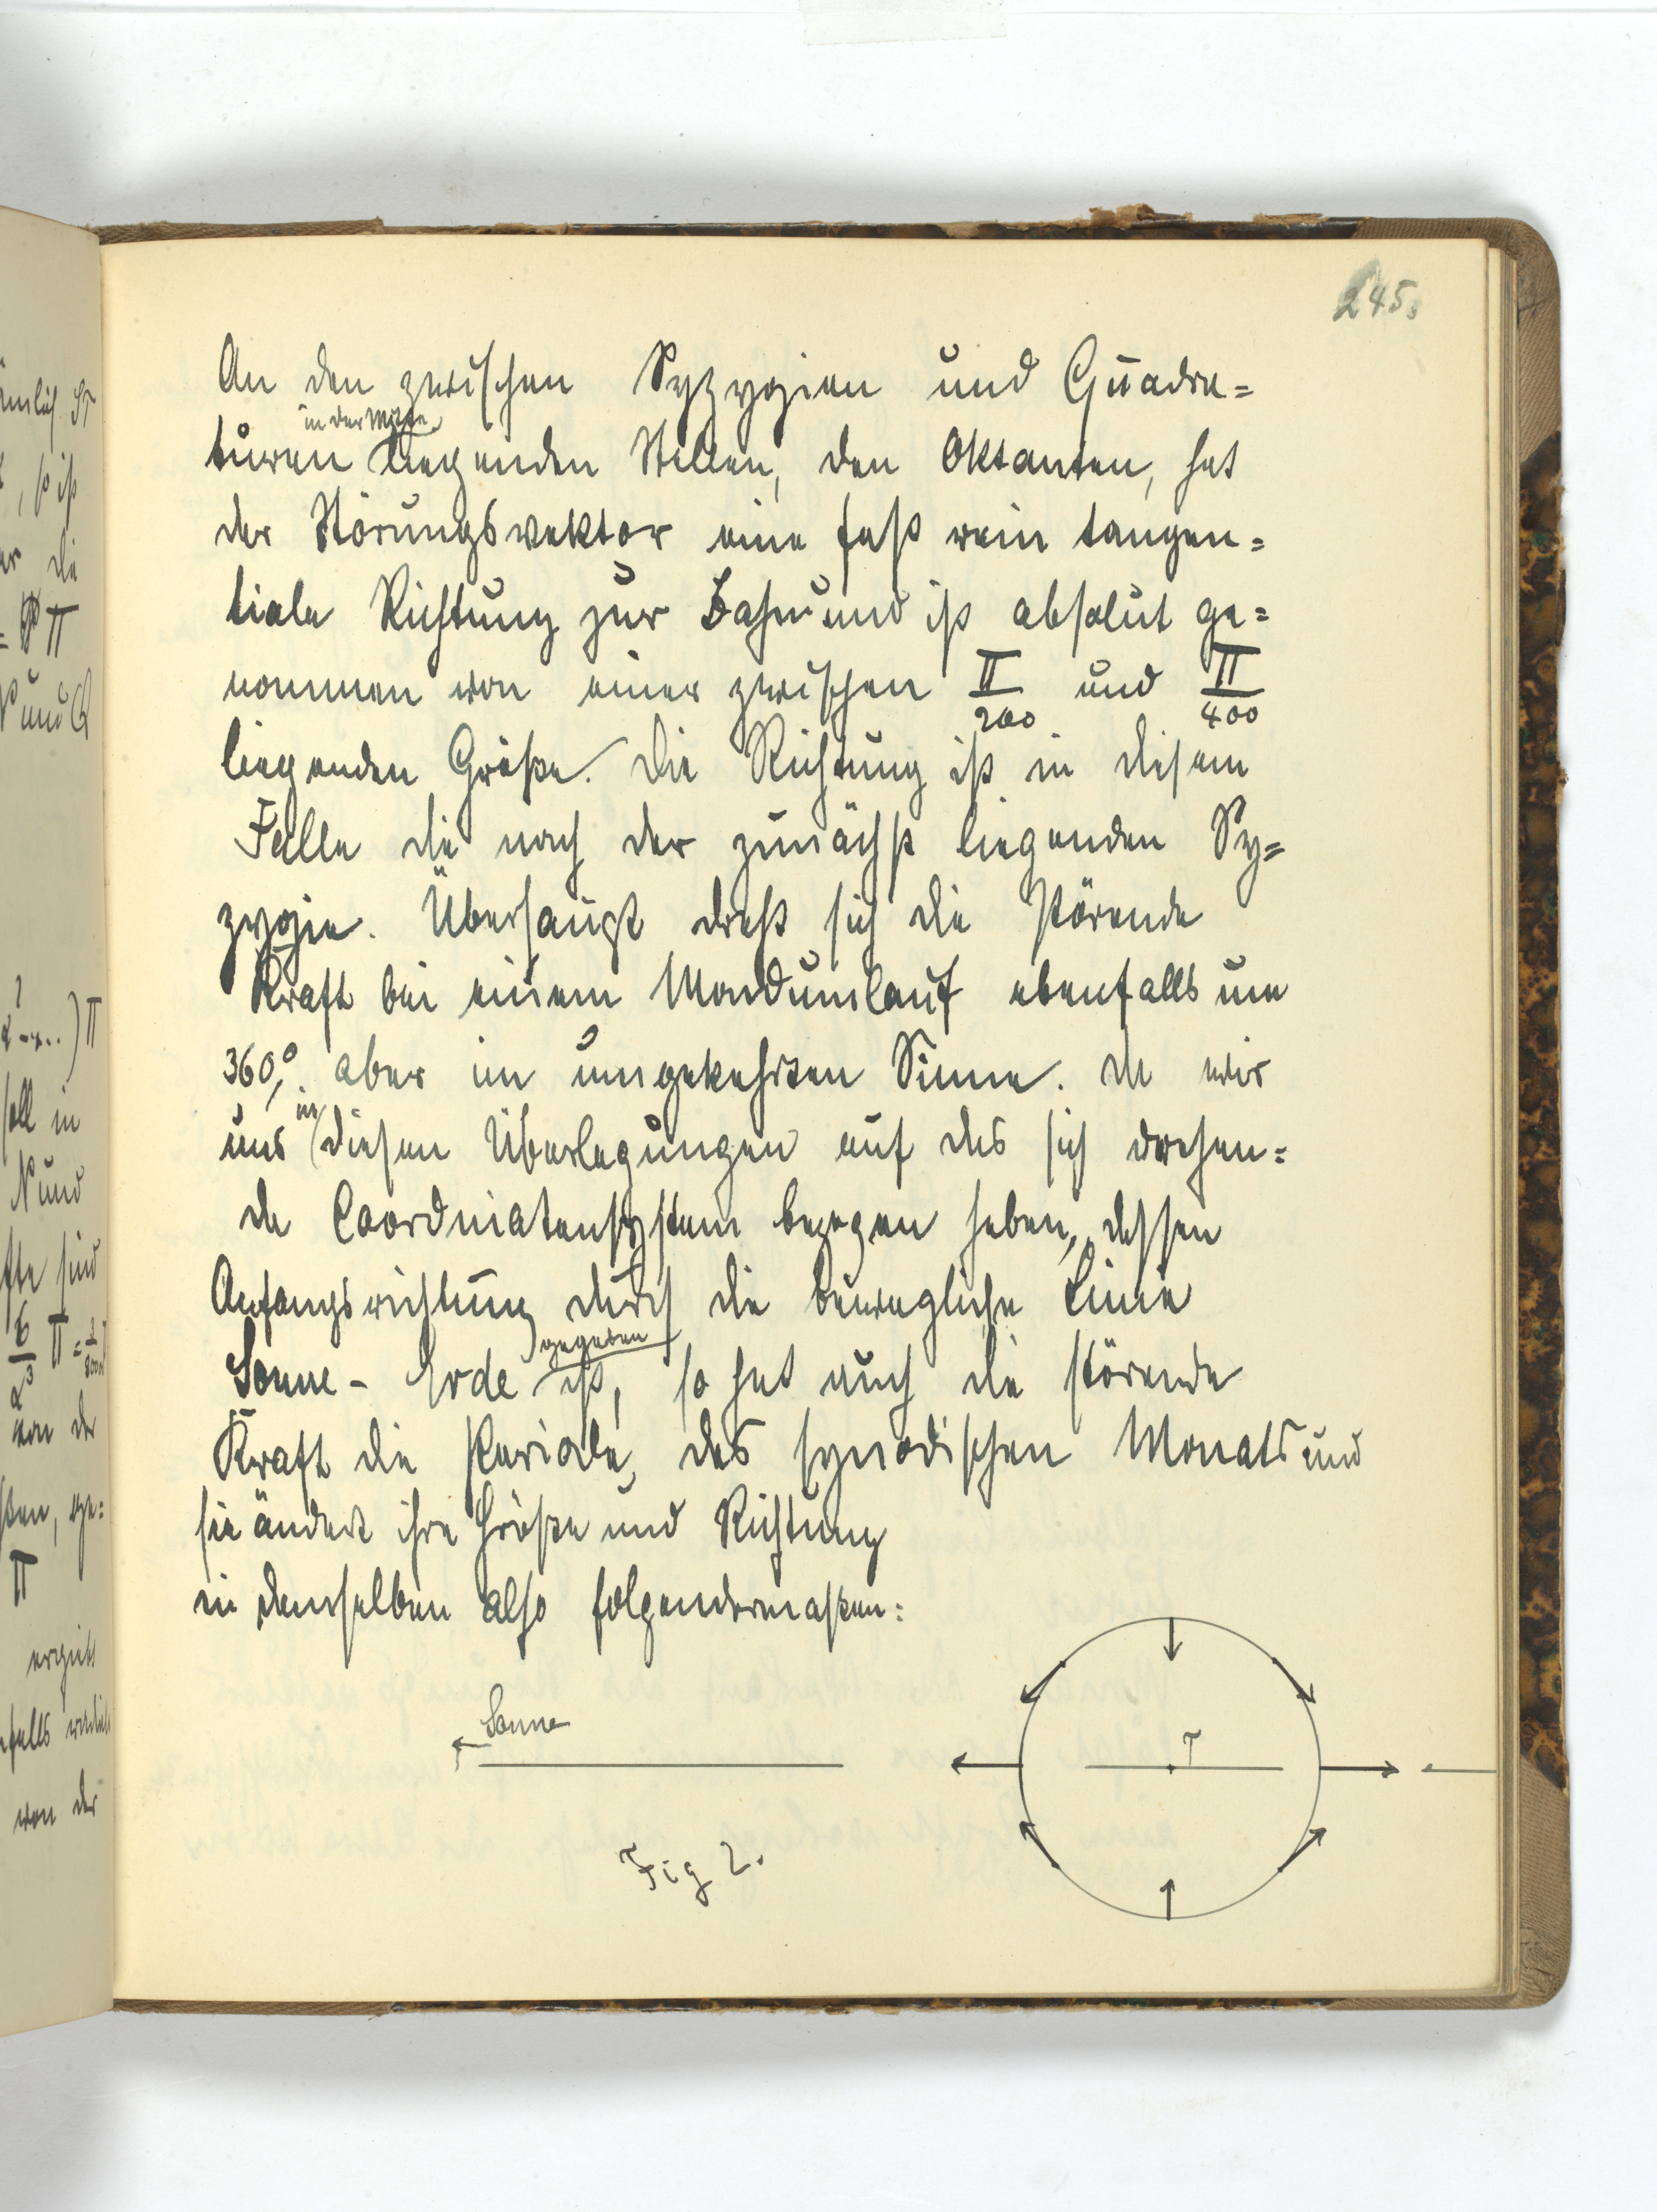 245.
An den zwischen Syzygien und Quadra=
in der Mitte
turen liegenden Stellen, den Oktanten, hat
der Störungsvektor eine fast rein tangen=
tiale Richtung zur Bahn und ist absolut ge=
nommen von einer zwischen Π/200 und Π/400
liegenden Größe. Die Richtung ist in diesem
Falle die nach der zunächst liegenden Sy=
zygie. Überhaupt dreht sich die störende
Kraft bei einem Mondumlauf ebenfalls um
360°, aber im umgekehrten Sinne. Da wir
uns in diesen Überlegungen auf das sich drehen=
de Coordinatensystem bezogen haben, dessen
Anfangsrichtung durch die bewegliche Linie
gegeben
Sonne - Erde ist, so hat auch die störende
Kraft die Periode des synodischen Monats und
sie ändert ihre Größe und Richtung
in demselben also folgendermaßen:
Sonne
T
Fig 2.